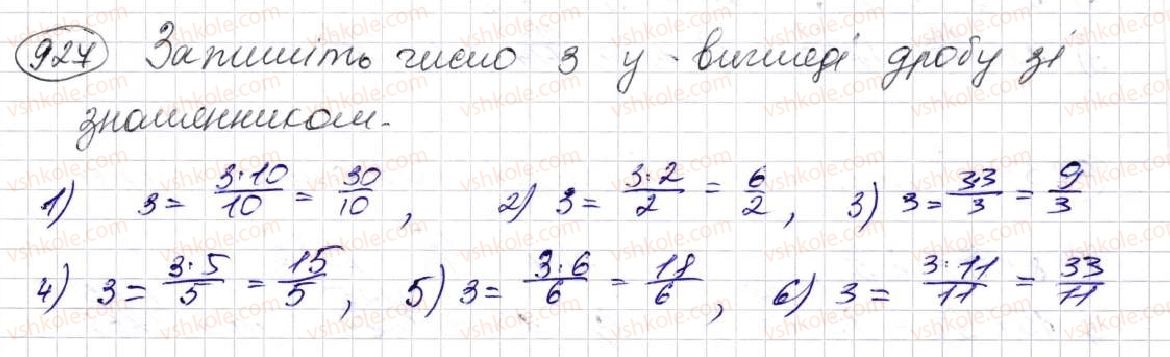 927 Запишіть число 3 у вигляді дробу зі
знаменником.
1) 3 = 3·10/10 = 30/10 , 2) 3 = 3·2/2 = 6/2 , 3) 3 = 3·3/3 = 9/3
4) 3 = 3·5/5 = 15/5 , 5) 3 = 3·6/6 = 18/6 , 6) 3 = 3·11/11 = 33/11